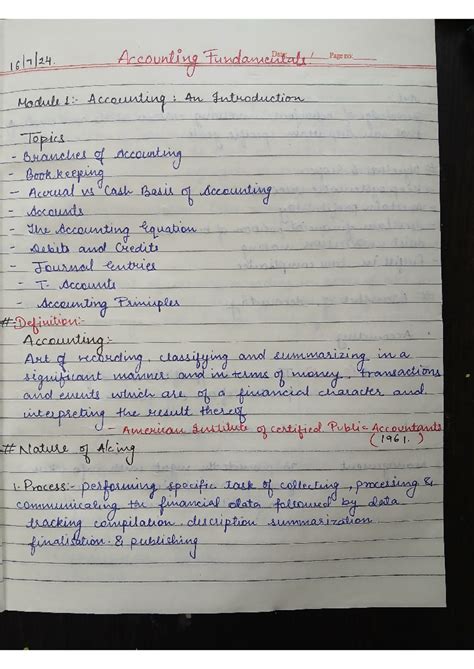 Date: Page no:
16/7/24. Accounting Fundamentals!
Module 1:- Accounting : An Introduction
Topics
- Branches of Accounting
- Book keeping
- Accrual vs Cash Basis of Accounting
- Accounts
- The Accounting Equation
- Debits and Credits
- Journal Entries
- T- Accounts
- Accounting Principles
# Definition:-
Accounting:-
Art of recording, classifying and summarizing in a
significant manner and in terms of money, transactions
and events which are of a financial character and
interpreting the result thereof
- American Institute of certified Public Accountants
(1961.)
# Nature of A/cing
1. Process:- performing specific task of collecting, processing &
communicating the financial data followed by data
tracking compilation, description summarization
finalisation & publishing